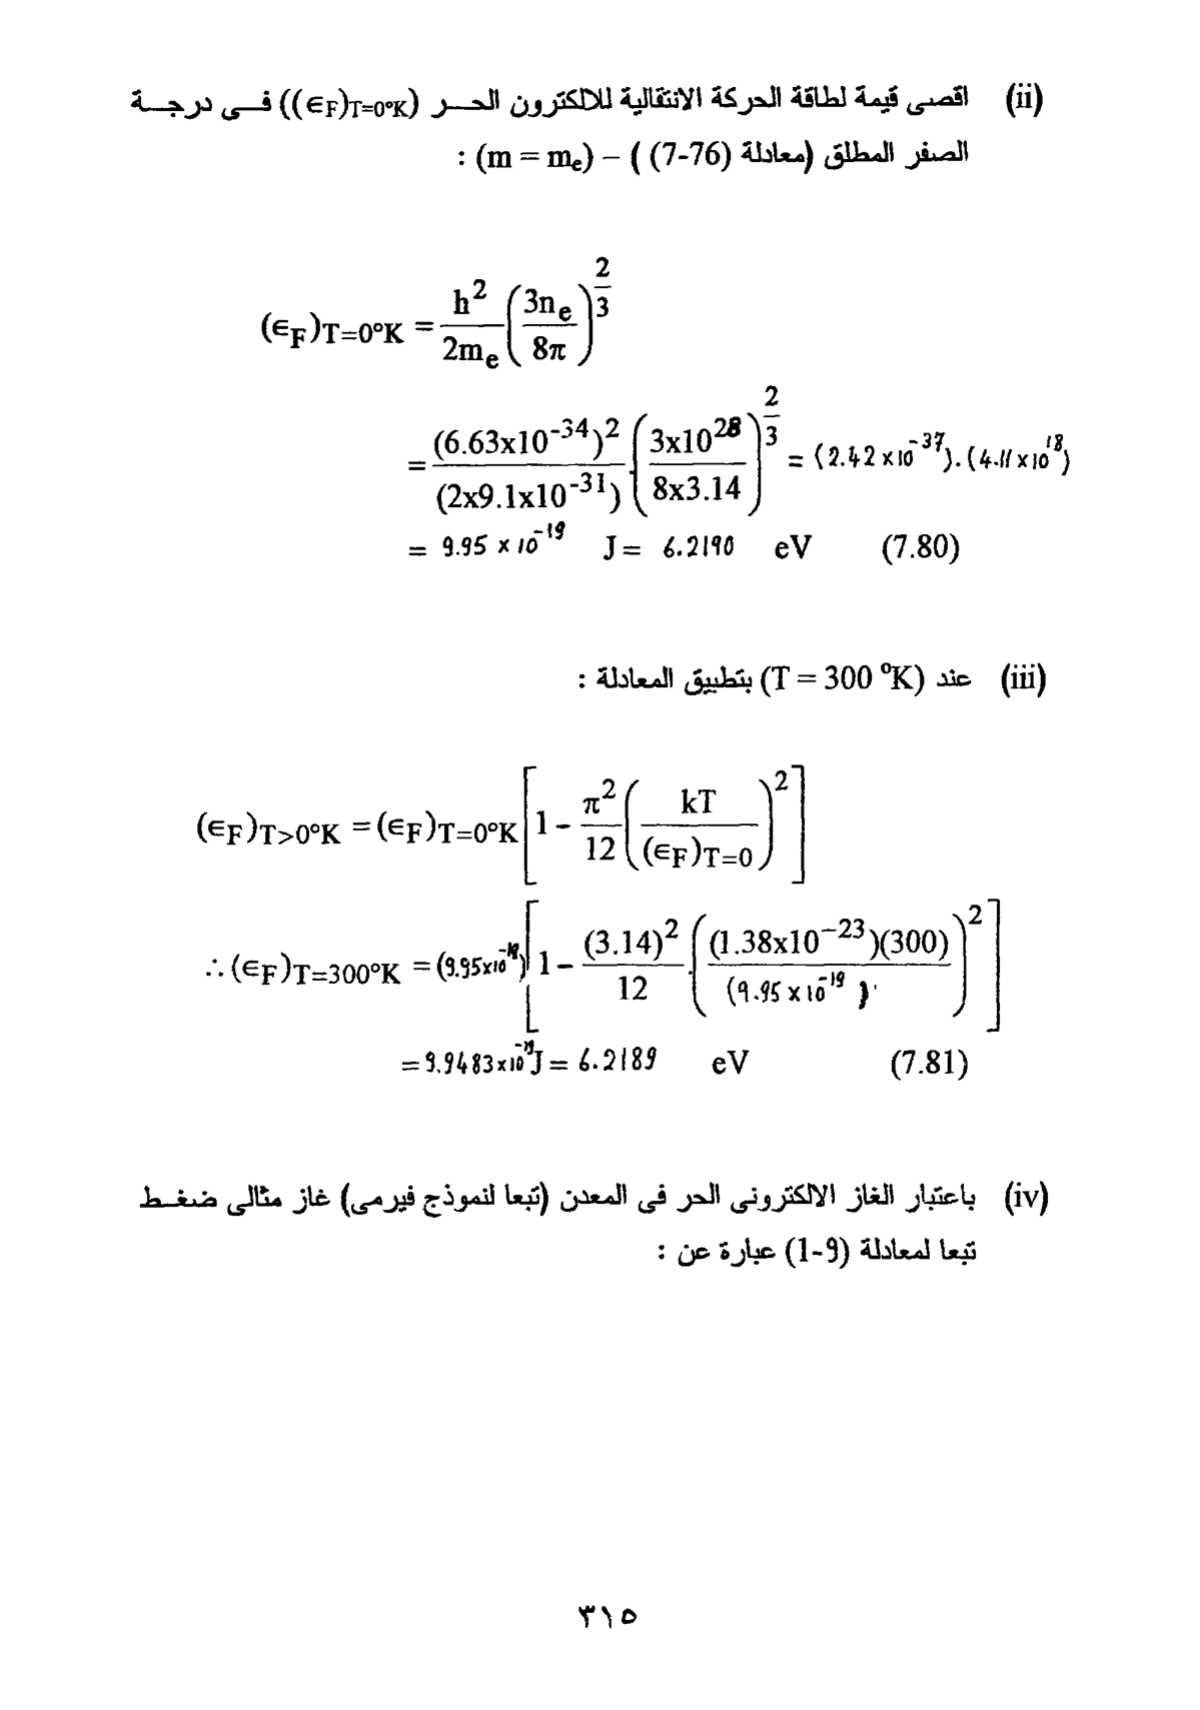 (ii) اقصى قيمة لطاقة الحركة الانتقالية للالكترون الحـــر ((∈F)T=0°K)) فـــى درجـــة
الصفر المطلق (معادلة (7-76) ) – (m = me) :
(∈F)T=0°K = h² / 2me (3ne / 8π)^(2/3)
= (6.63x10⁻³⁴)² / (2x9.1x10⁻³¹) . (3x10²⁸ / 8x3.14)^(2/3) = (2.42 x 10⁻³⁷).(4.11 x 10¹⁸)
= 9.95 x 10⁻¹⁹ J = 6.2190 eV (7.80)
(iii) عند (T = 300 °K) بتطبيق المعادلة :
(∈F)T>0°K = (∈F)T=0°K [1 - π²/12 (kT / (∈F)T=0)²]
∴ (∈F)T=300°K = (9.95x10⁻¹⁹) [1 - (3.14)²/12 . ((1.38x10⁻²³)(300) / (9.95 x 10⁻¹⁹))²]
= 9.9483x10⁻¹⁹ J = 6.2189 eV (7.81)
(iv) باعتبار الغاز الالكترونى الحر فى المعدن (تبعا لنموذج فيرمى) غاز مثالى ضغـط
تبعا لمعادلة (9-1) عبارة عن :
٣١٥